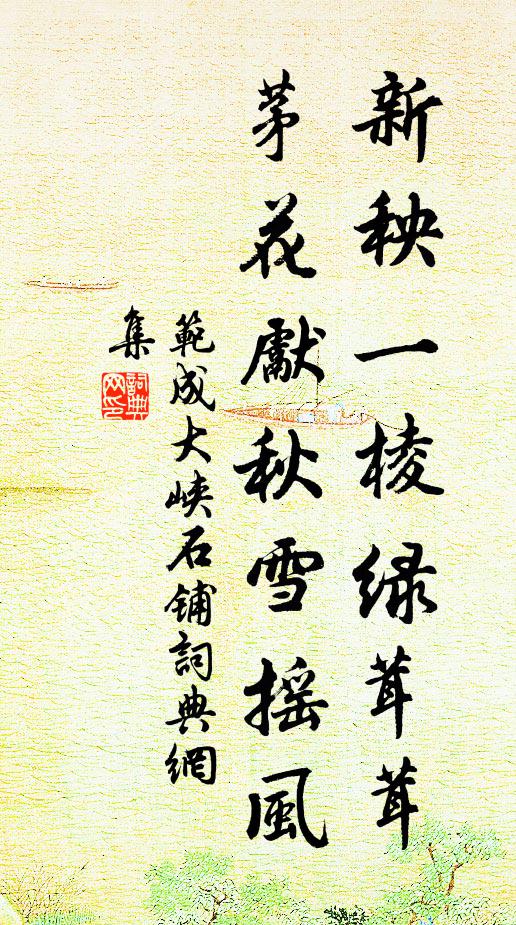 新秧一棱绿茸茸
茅花獻秋雪摇風
範成大峡石铺詞典網
集
詞典
网印